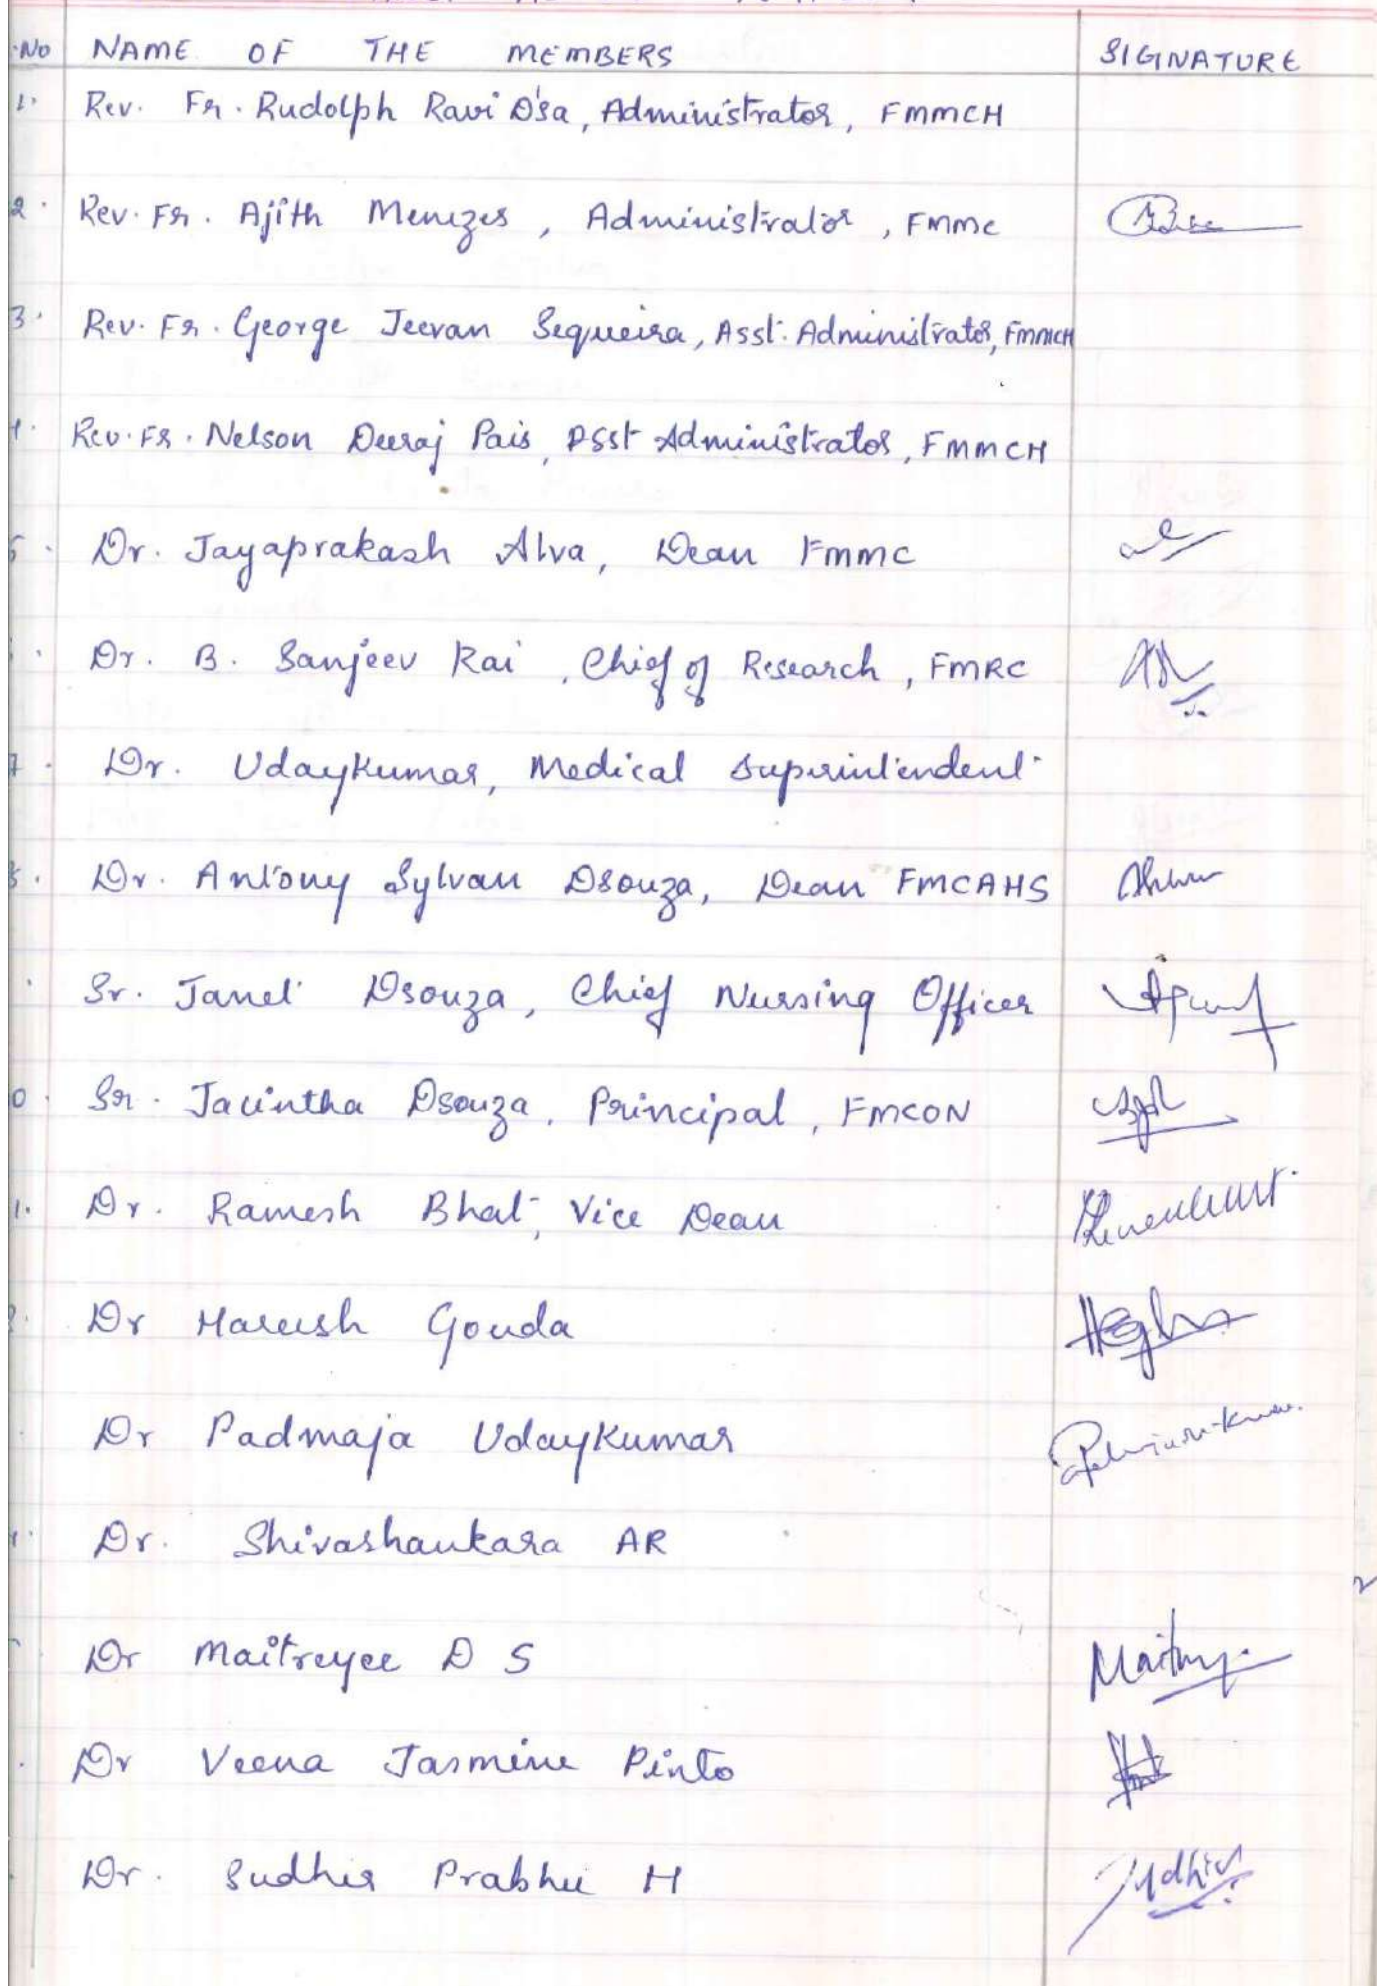 No NAME OF THE MEMBERS SIGINATURE
1. Rev. Fr. Rudolph Ravi D'sa, Administrator, FMMCH
2. Rev. Fr. Ajith Menezes, Administrator, FMMC
3. Rev. Fr. George Jeevan Sequeira, Asst. Administrator, FMMCH
Rev. Fr. Nelson Deeraj Pais, Asst Administrator, FMMCH
5. Dr. Jayaprakash Alva, Dean FMMC
Dr. B. Sanjeev Rai, Chief of Research, FMRC
7. Dr. Udaykumar, Medical Superintendent
Dr. Antony Sylvan Dsouza, Dean FMCAHS
Sr. Janet Dsouza, Chief Nursing Officer
0. Sr. Jacintha Dsouza, Principal, FMCON
1. Dr. Ramesh Bhat, Vice Dean
Dr Hareesh Gouda
Dr Padmaja Udaykumar
Dr. Shivashankara AR
Dr Maitreyee D S
Dr Veena Jasmine Pinto
Dr. Sudhir Prabhu H